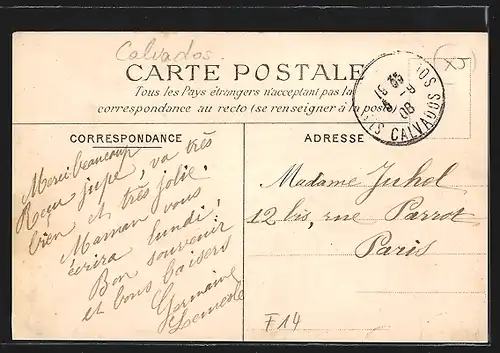 Calvados
CARTE POSTALE
Tous les Pays étrangers n'acceptant pas la
correspondance au recto (se renseigner à la poste)
CALVADOS
CORRESPONDANCE
ADRESSE
Merci beaucoup
Reçu jupe, va très
bien et très jolie.
Maman vous
écrira lundi,
Bon souvenir
et bons baisers
Germaine
Madame Juhel
12 bis, rue Parrot
Paris
F14